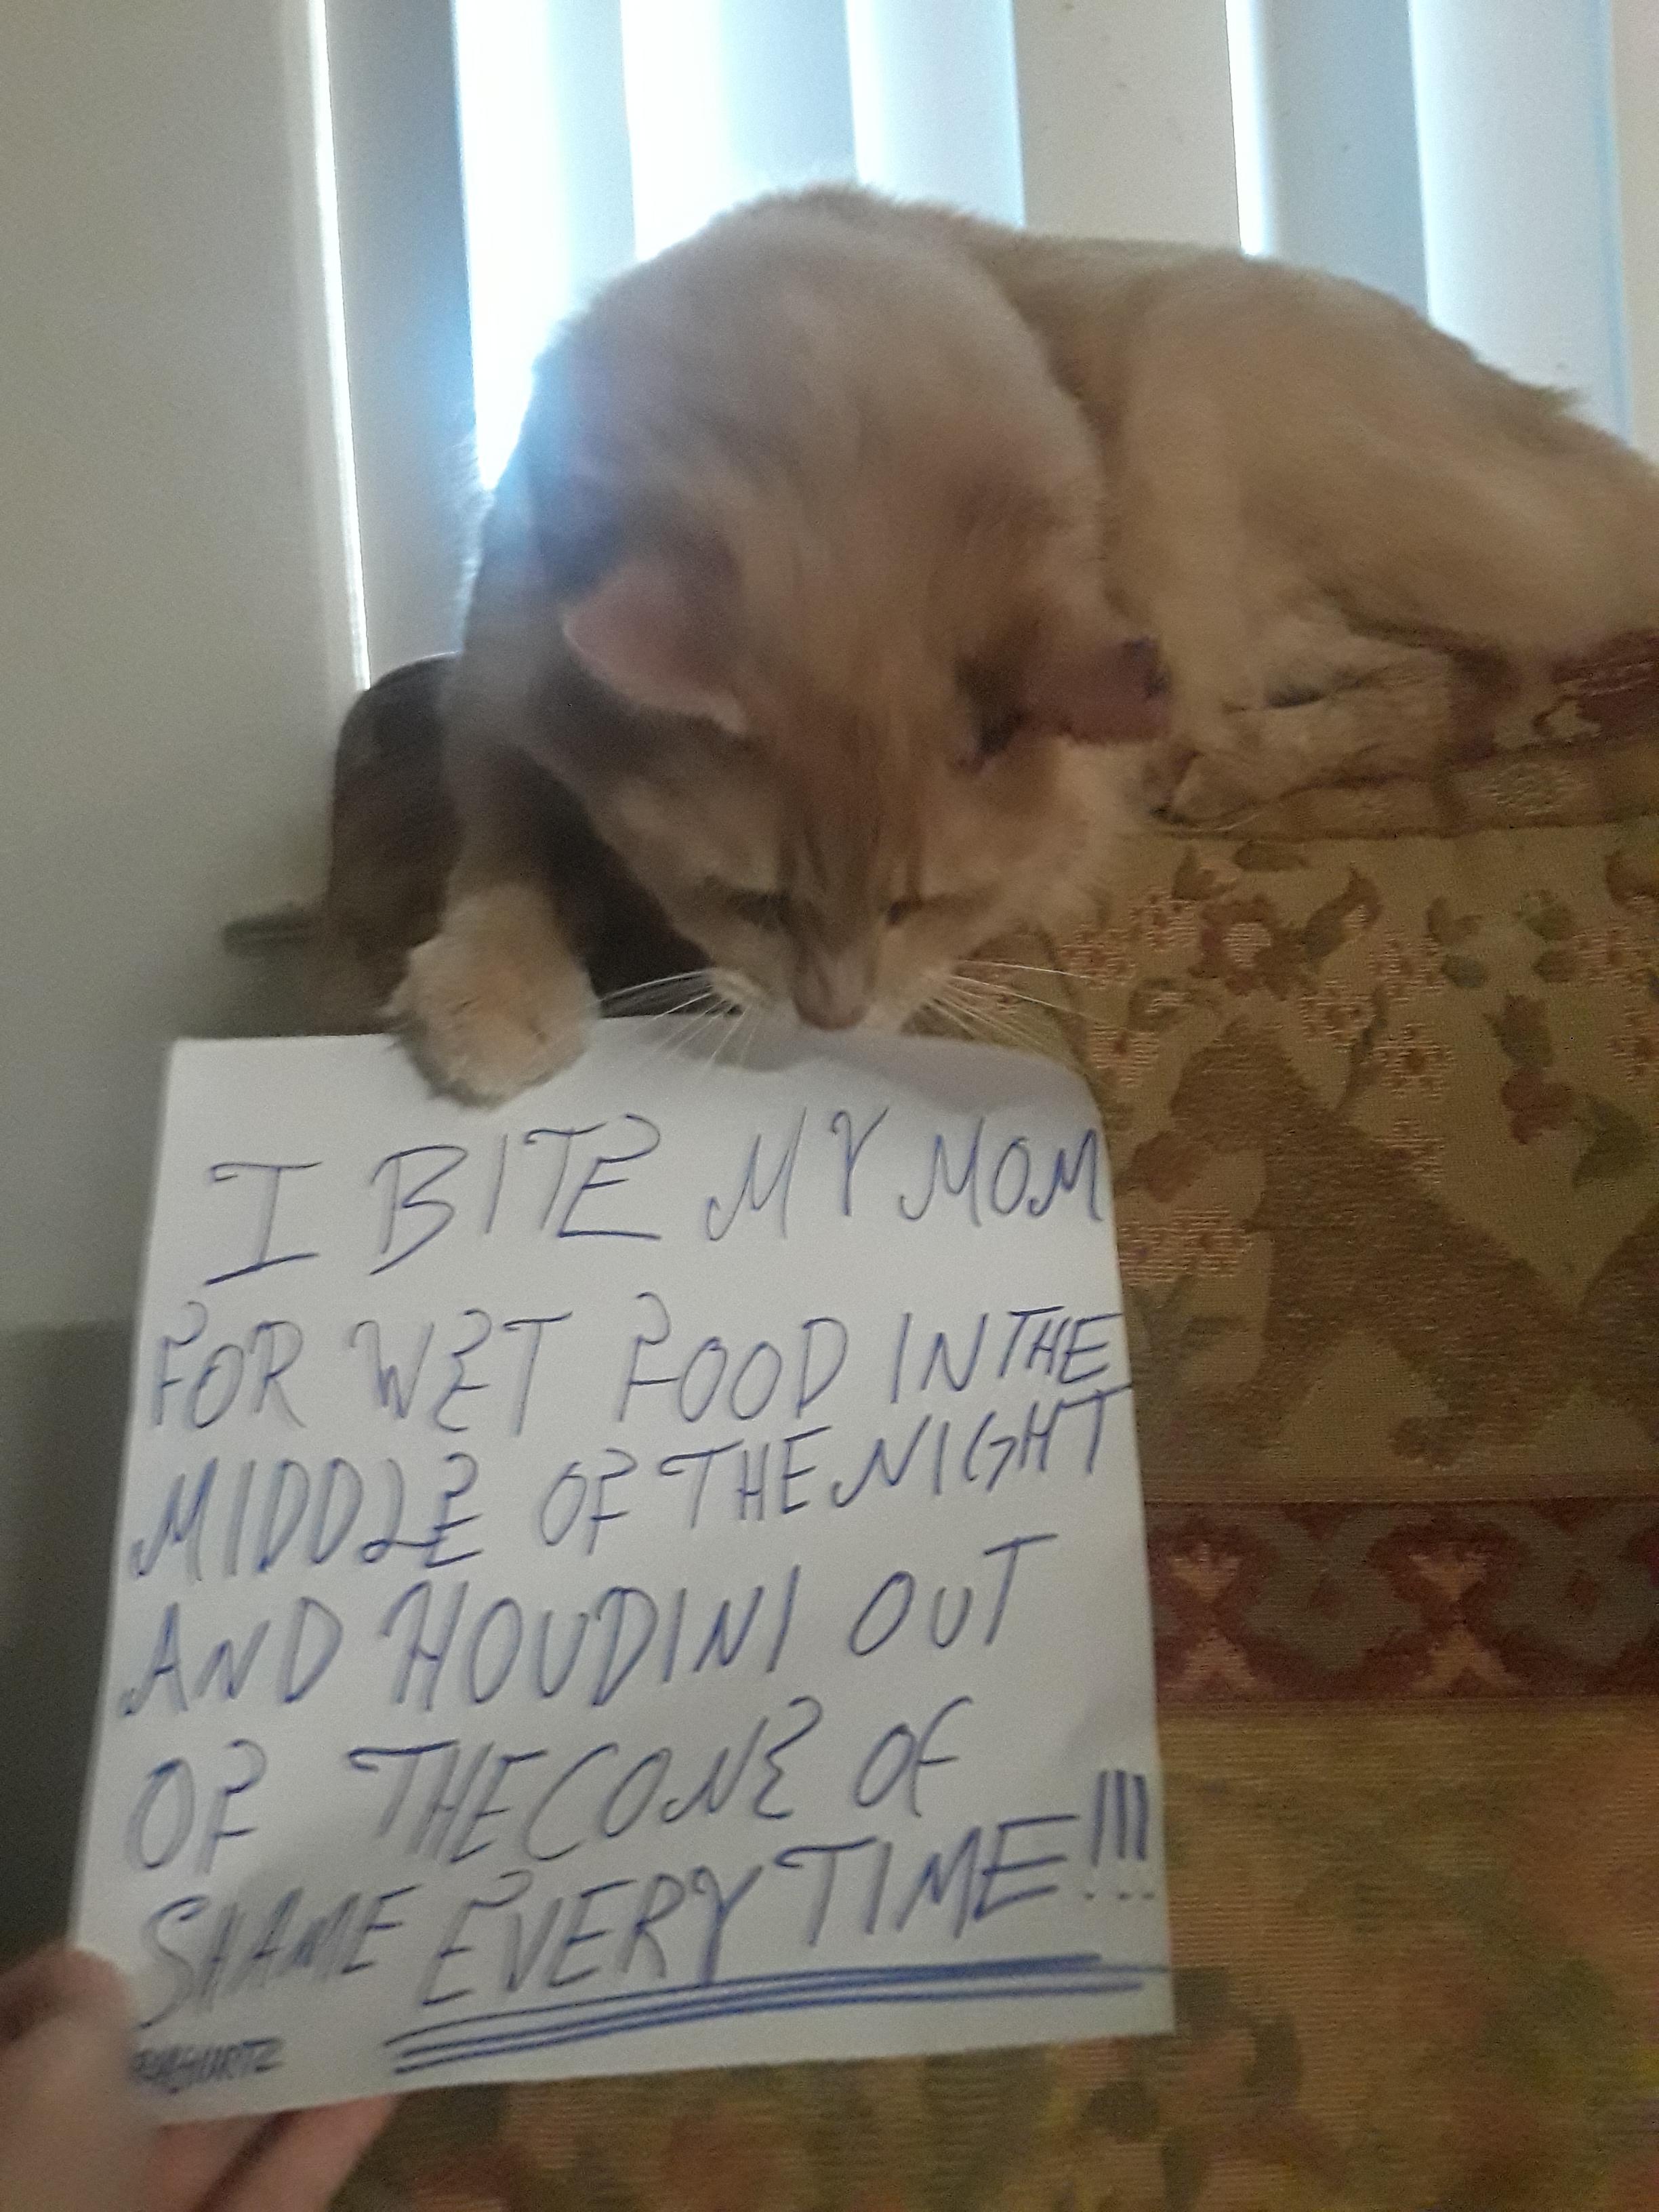 I BITE MY MOM
FOR WET FOOD IN THE
MIDDLE OF THE NIGHT
AND HOUDINI OUT
OF THE CONE OF
SHAME EVERY TIME!!!